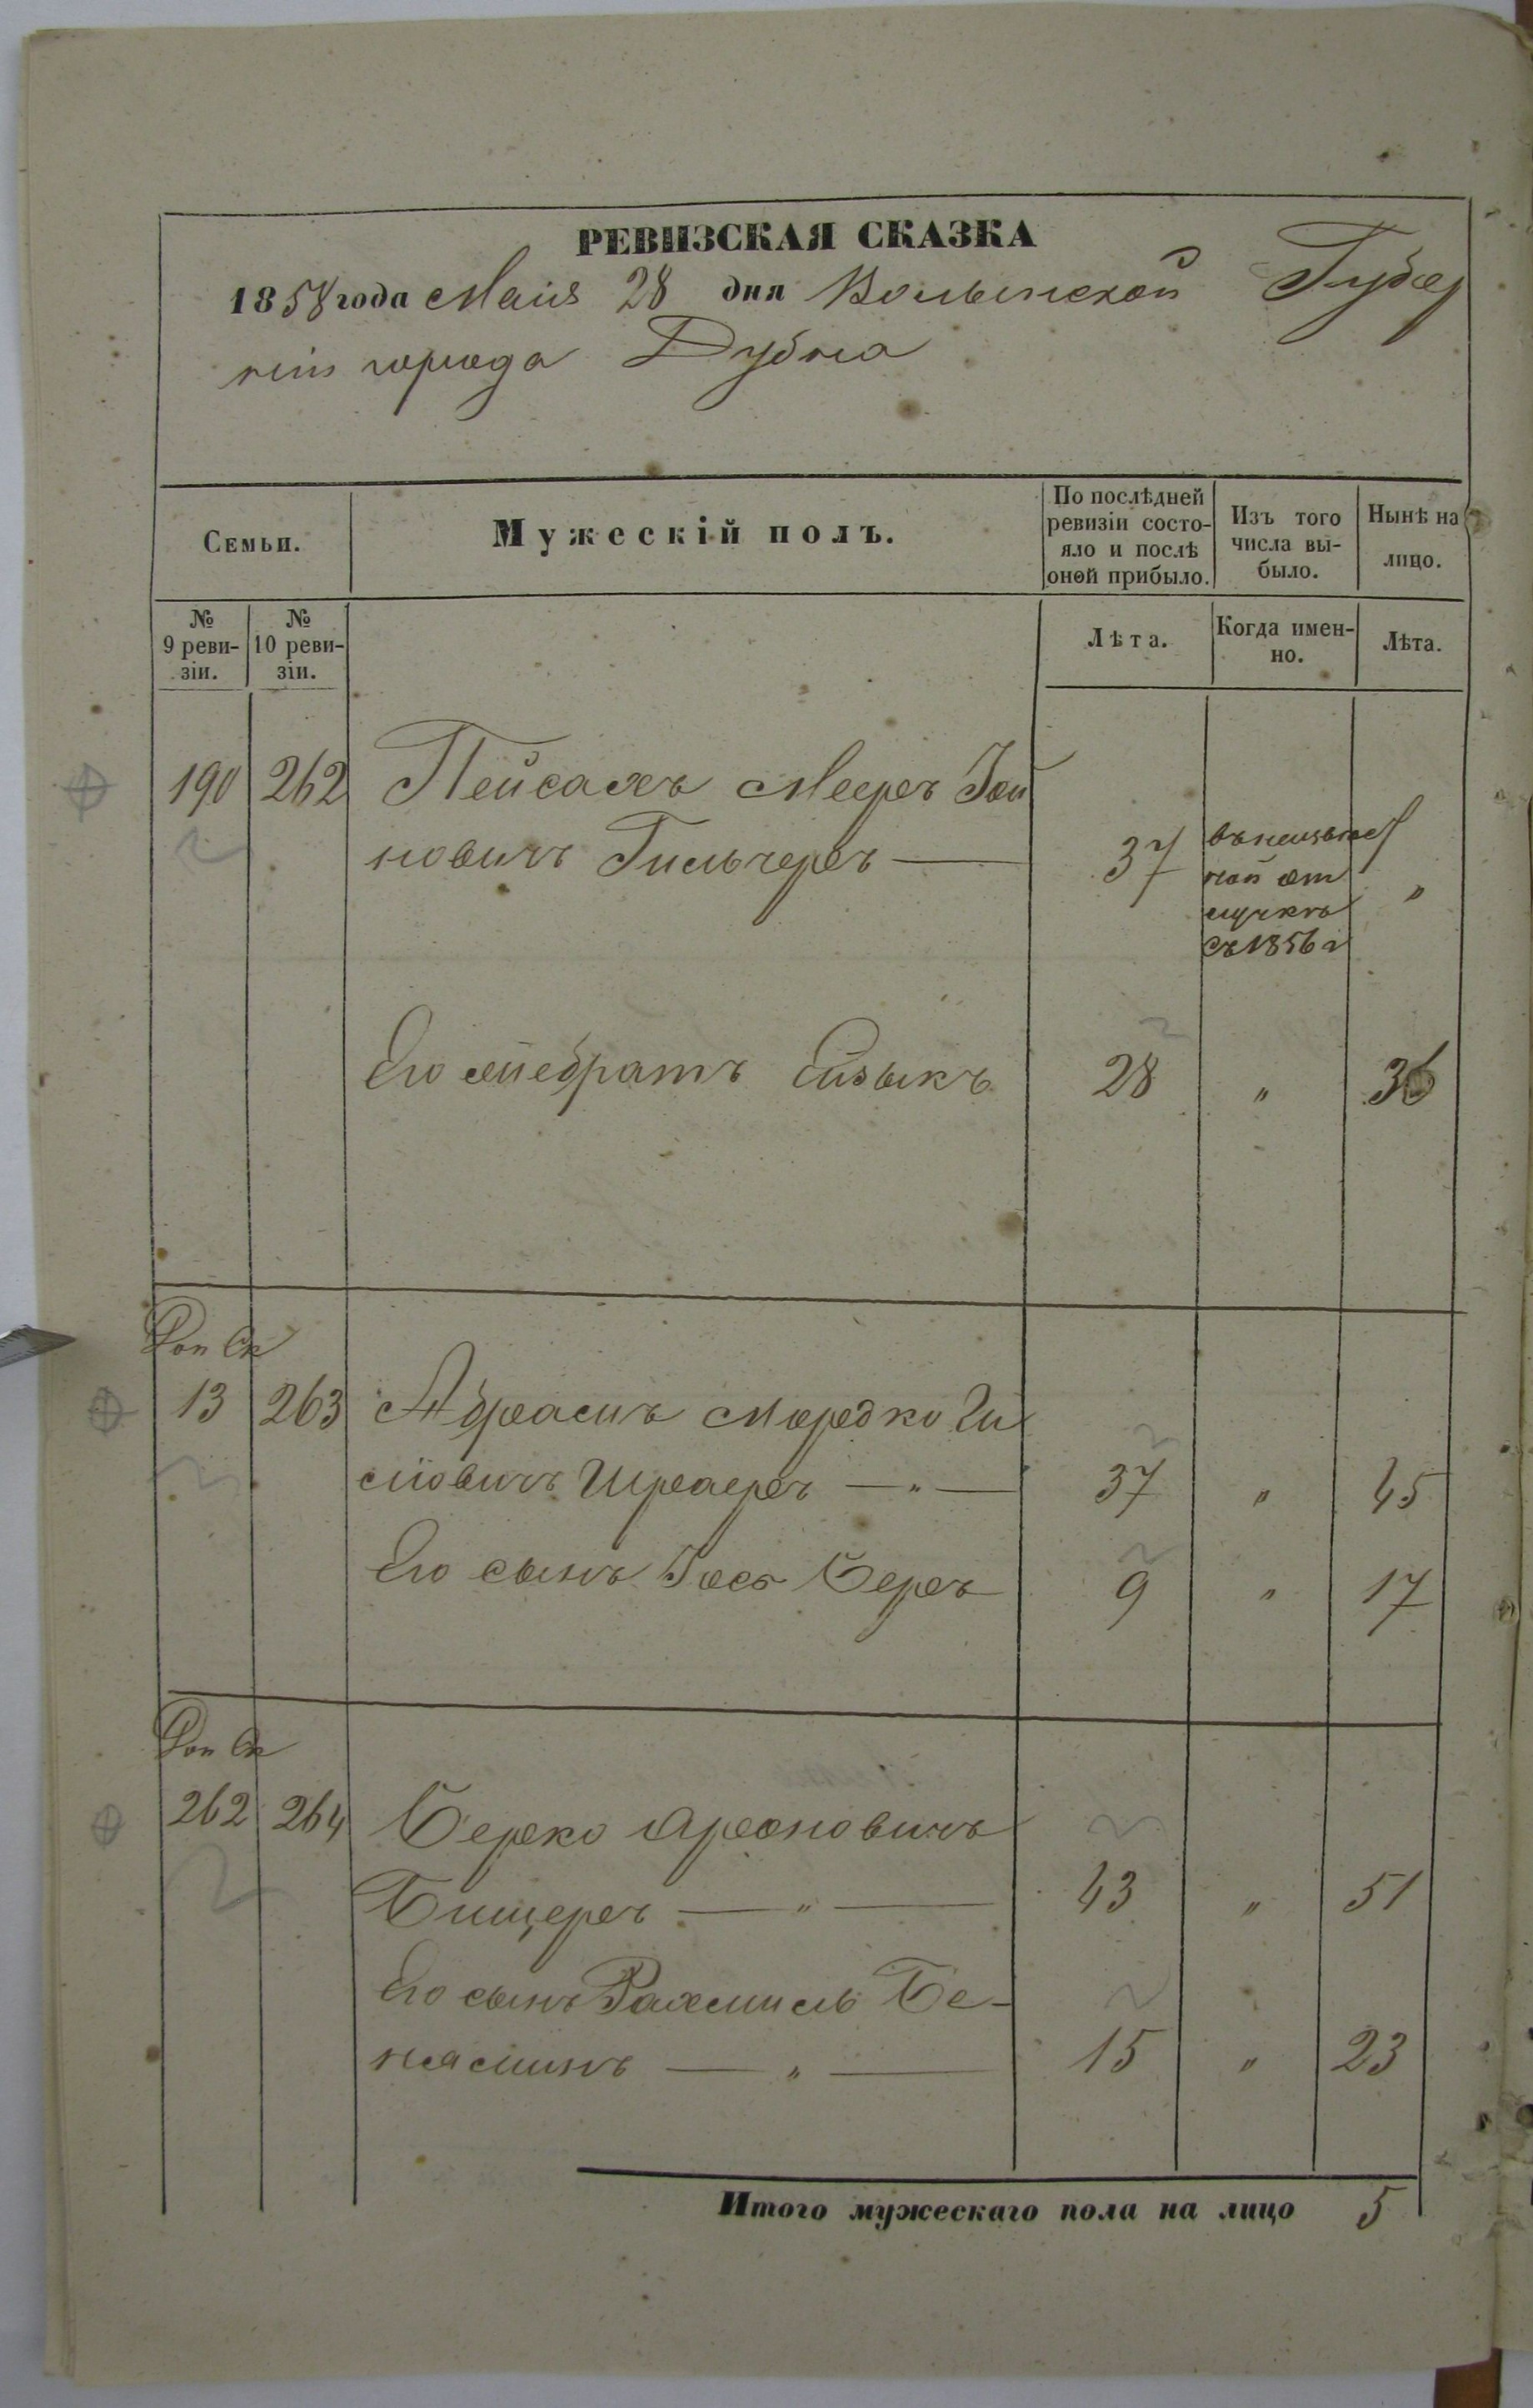 РЕВИЗСКАЯ СКАЗКА
1858 года Маія 28 дня Волынской Губер
ніи города Дубна
Семьи.
Мужескій полъ.
По послѣдней ревизіи состо-
яло и послѣ
оной прибыло.
Изъ того
числа вы-
было.
Нынѣ на
лицо.
№
9 реви-
зіи.
№
10 реви-
зіи.
Лѣта.
Когда имен-
но.
Лѣта.
190 262 Пейсахъ Мееръ Іой
новичъ Гильчеръ — 37
въ неизвѣст
ной от
лучкѣ
съ 1856 г
"
Его братъ Ейзыкъ 28 " 36
Доп Ск
13 263 Абрамъ Мордко
Шраеръ — " — 37 " 45
Его сынъ Іось Беръ 9 " 17
Доп Ск
262 264 Берко Ароновичъ
Бищеръ — " — 43 " 51
Его сынъ Рахмиль Бе-
няминъ — " — 15 " 23
Итого мужескаго пола на лицо 5